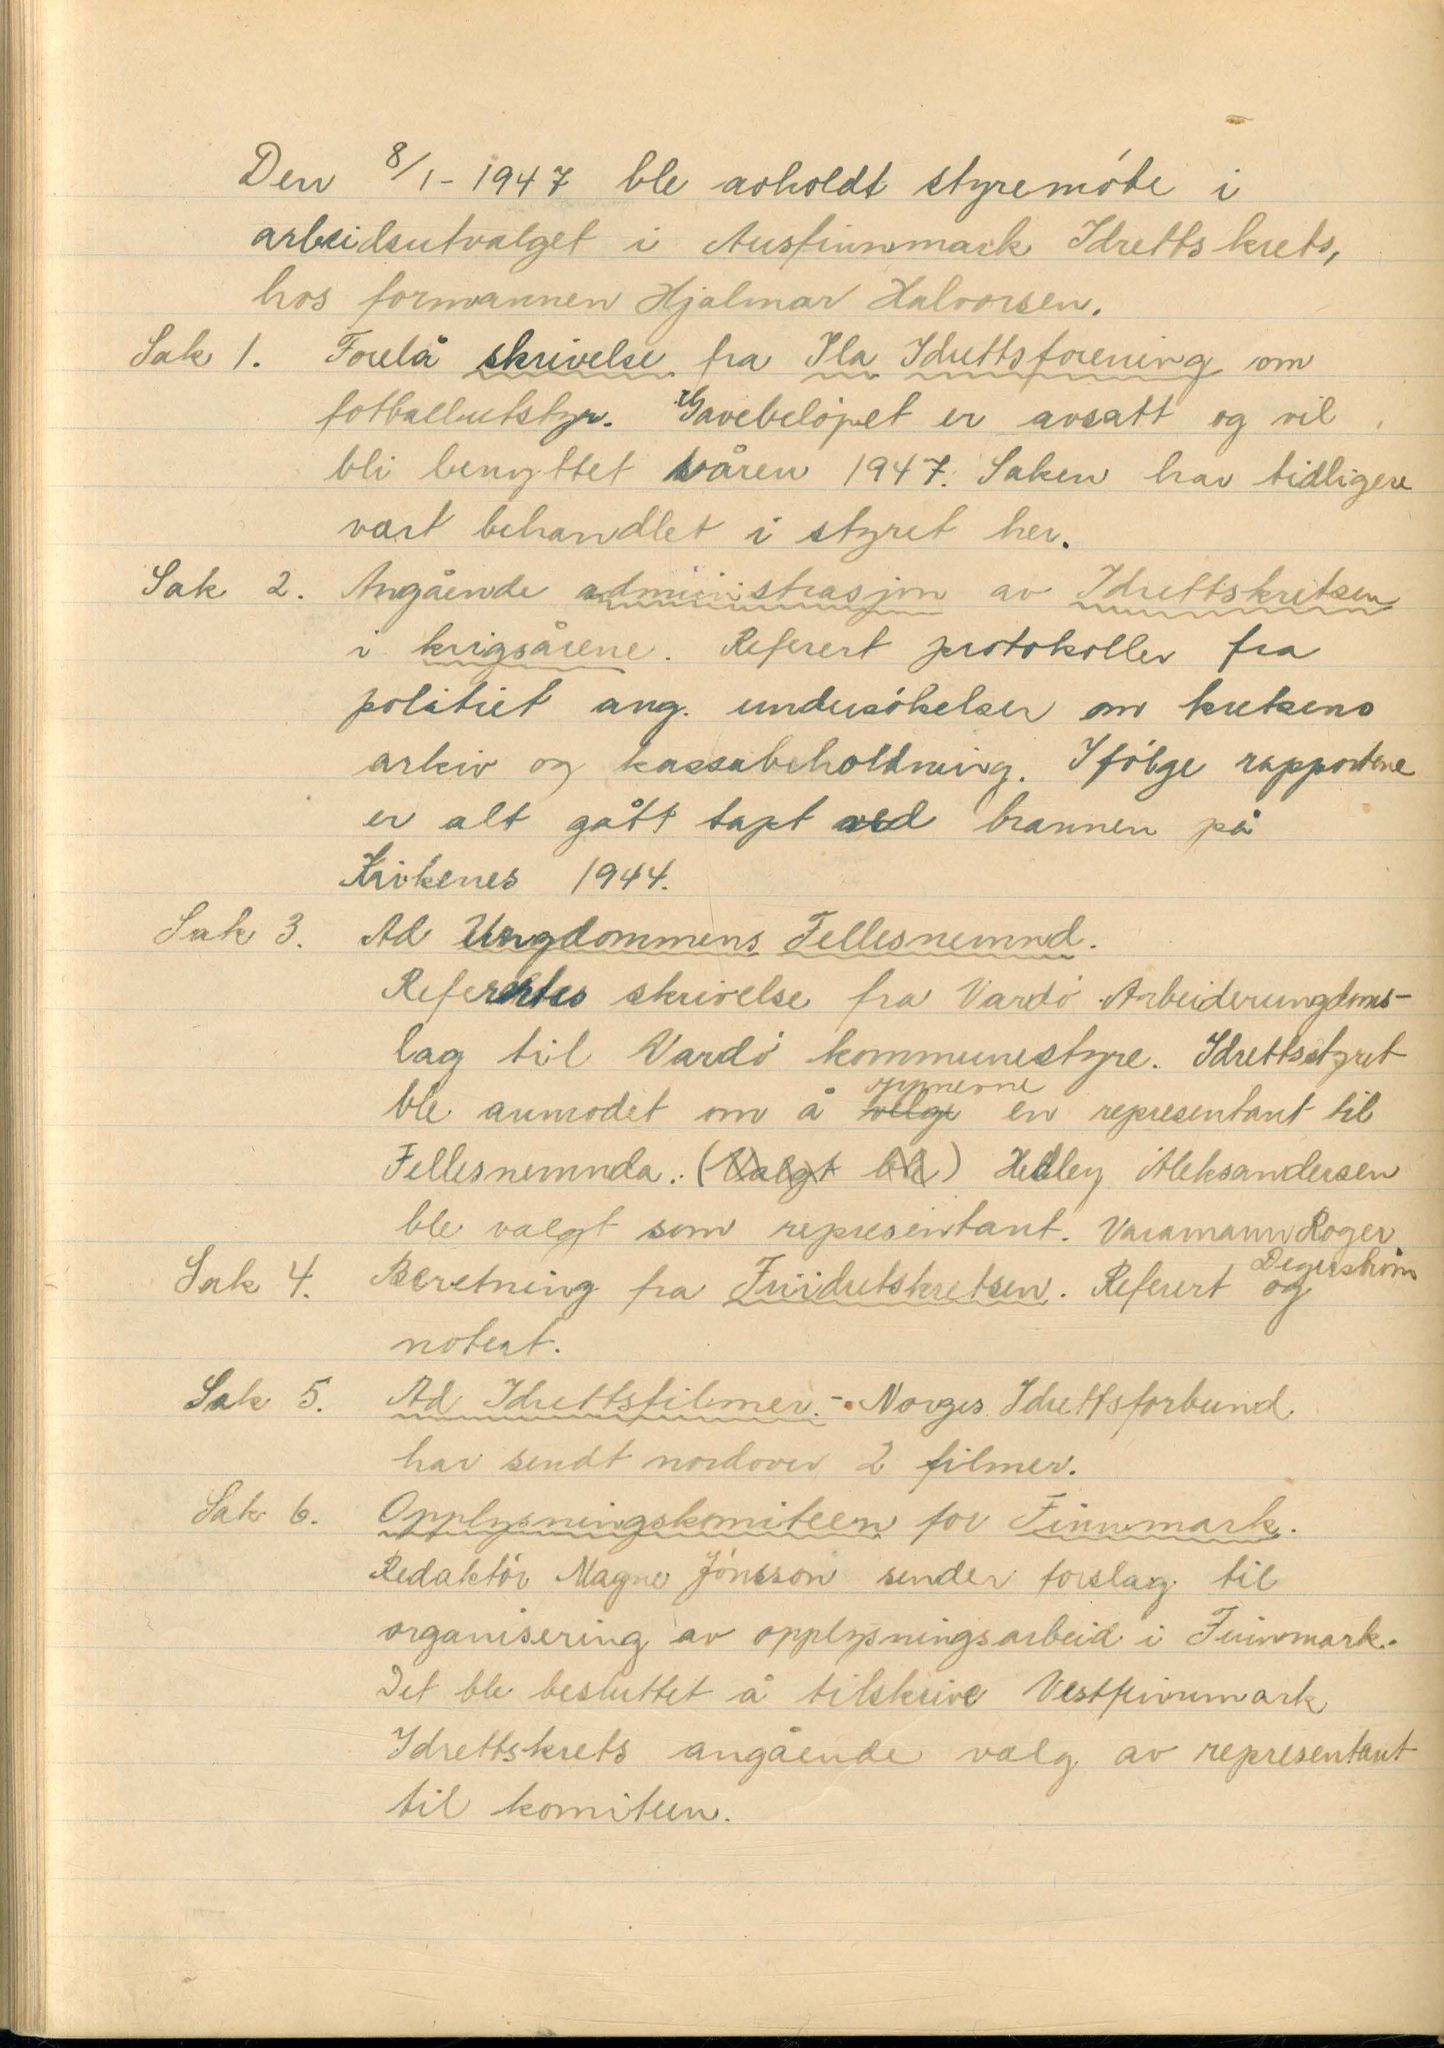 Den 8/1-1947 ble avholdt styremöte i
arbeidsutvalget i Austfinnmark Idrettskrets,
hos formannen Hjalmar Halvorsen.
Sak 1. Forelå skrivelse fra Ila Idrettsforening om
fotballutstyr. Gavebelöpet er avsatt og vil
bli benyttet våren 1947. Saken har tidligere
vært behandlet i styret her.
Sak 2. Angående administrasjon av Idrettskretsen
i krigsårene. Referert protokoller fra
politiet ang. undersökelser om kretsens
arkiv og kassabeholdning. Ifölge rapportene
er alt gått tapt ved brannen på
Kirkenes 1944.
Sak 3. Ad Ungdommens Fellesnemnd.
Referertes skrivelse fra Vardö Arbeiderungdoms-
lag til Vardö kommunestyre. Idrettsstyret
ble anmodet om å velge oppnevne en representant til
Fellesnemnda. (Valgt ble) Hedley Aleksandersen
ble valgt som representant. Varamann Roger
Degerström
Sak 4. Beretning fra Friidrettskretsen. Referert og
notert.
Sak 5. Ad Idrettsfilmer. - Norges Idrettsforbund
har sendt nordover 2 filmer.
Sak 6. Opplysningskomiteen for Finnmark.
Redaktör Magne Jönsson sender forslag til
organisering av opplysningsarbeid i Finnmark.
Det ble besluttet å tilskrive Vestfinnmark
Idrettskrets angående valg av representant
til komiteen.